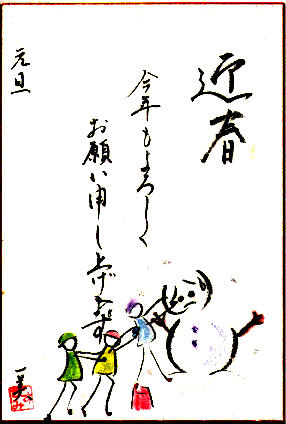 近春
今年もよろしく
お願い申し上げます
元旦